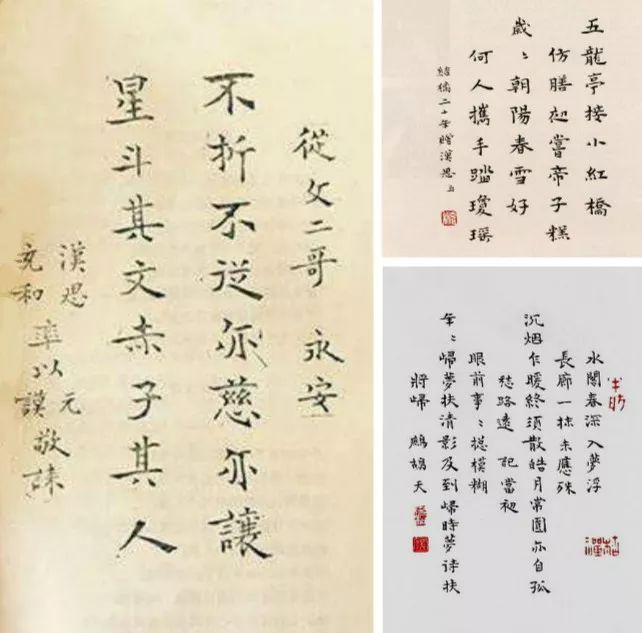 從文二哥 永安
不折不從亦慈亦讓
星斗其文赤子其人
漢思
充和 率以元
以謨 敬誄
五龍亭接小紅橋
仿膳初嘗帝子糕
歲々朝陽春雪好
何人攜手踏瓊瑤
結褵二十年贈漢思
水閣春深入夢浮
長廊一抹未應殊
沉烟乍暖終須散皓月常圓亦自孤
愁路遠 記當初
眼前事々摠模糊
年々歸夢扶清影及到歸時夢待扶
將歸 鷓鴣天